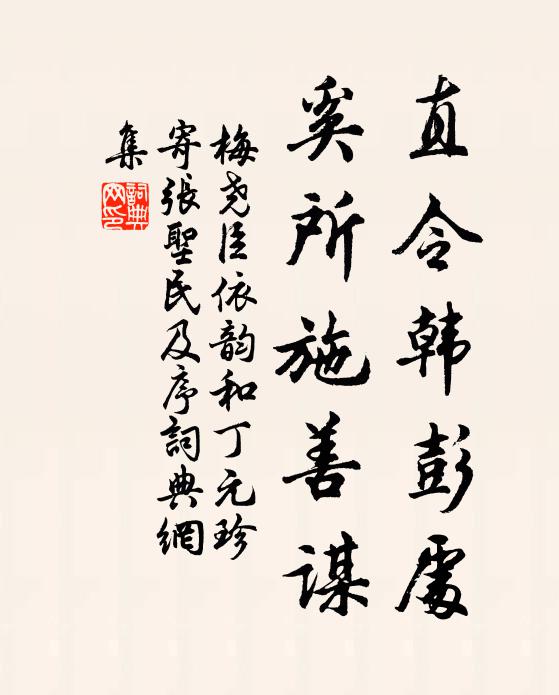 直令韩彭處
奚所施善谋
梅尧臣依韵和丁元珍
寄張聖民及序詞典網
集
詞典
网印